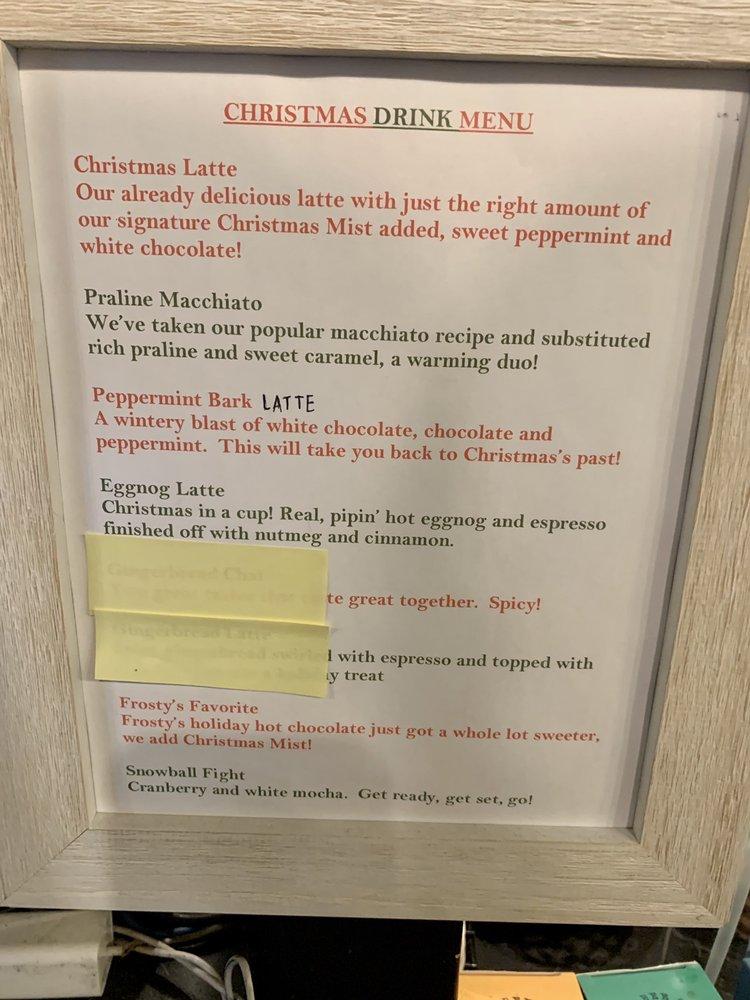 CHRISTMAS DRINK MENU
Christmas Latte
Our already delicious latte with just the right amount of
our signature Christmas Mist added, sweet peppermint and
white chocolate!
Praline Macchiato
We've taken our popular macchiato recipe and substituted
rich praline and sweet caramel, a warming duo!
Peppermint Bark LATTE
A wintery blast of white chocolate, chocolate and
peppermint. This will take you back to Christmas's past!
Eggnog Latte
Christmas in a cup! Real, pipin' hot eggnog and espresso
finished off with nutmeg and cinnamon.
Gingerbread Chai
great together. Spicy!
Gingerbread Latte
swirled with espresso and topped with
treat
Frosty's Favorite
Frosty's holiday hot chocolate just got a whole lot sweeter,
we add Christmas Mist!
Snowball Fight
Cranberry and white mocha. Get ready, get set, go!